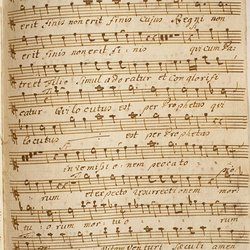 erit finis non erit finis Cujus Regni non
erit finis non erit fi nis qui cum Pa
tre et Filio simul adoratur et Conglorifi
catur Qui locutus est per Prophetas qui
locutus est per Prophetas
in remissio nem pecato
rum et expecto resurrectionem mor
tu orum mor tu o rum
Venturi Seculi amen